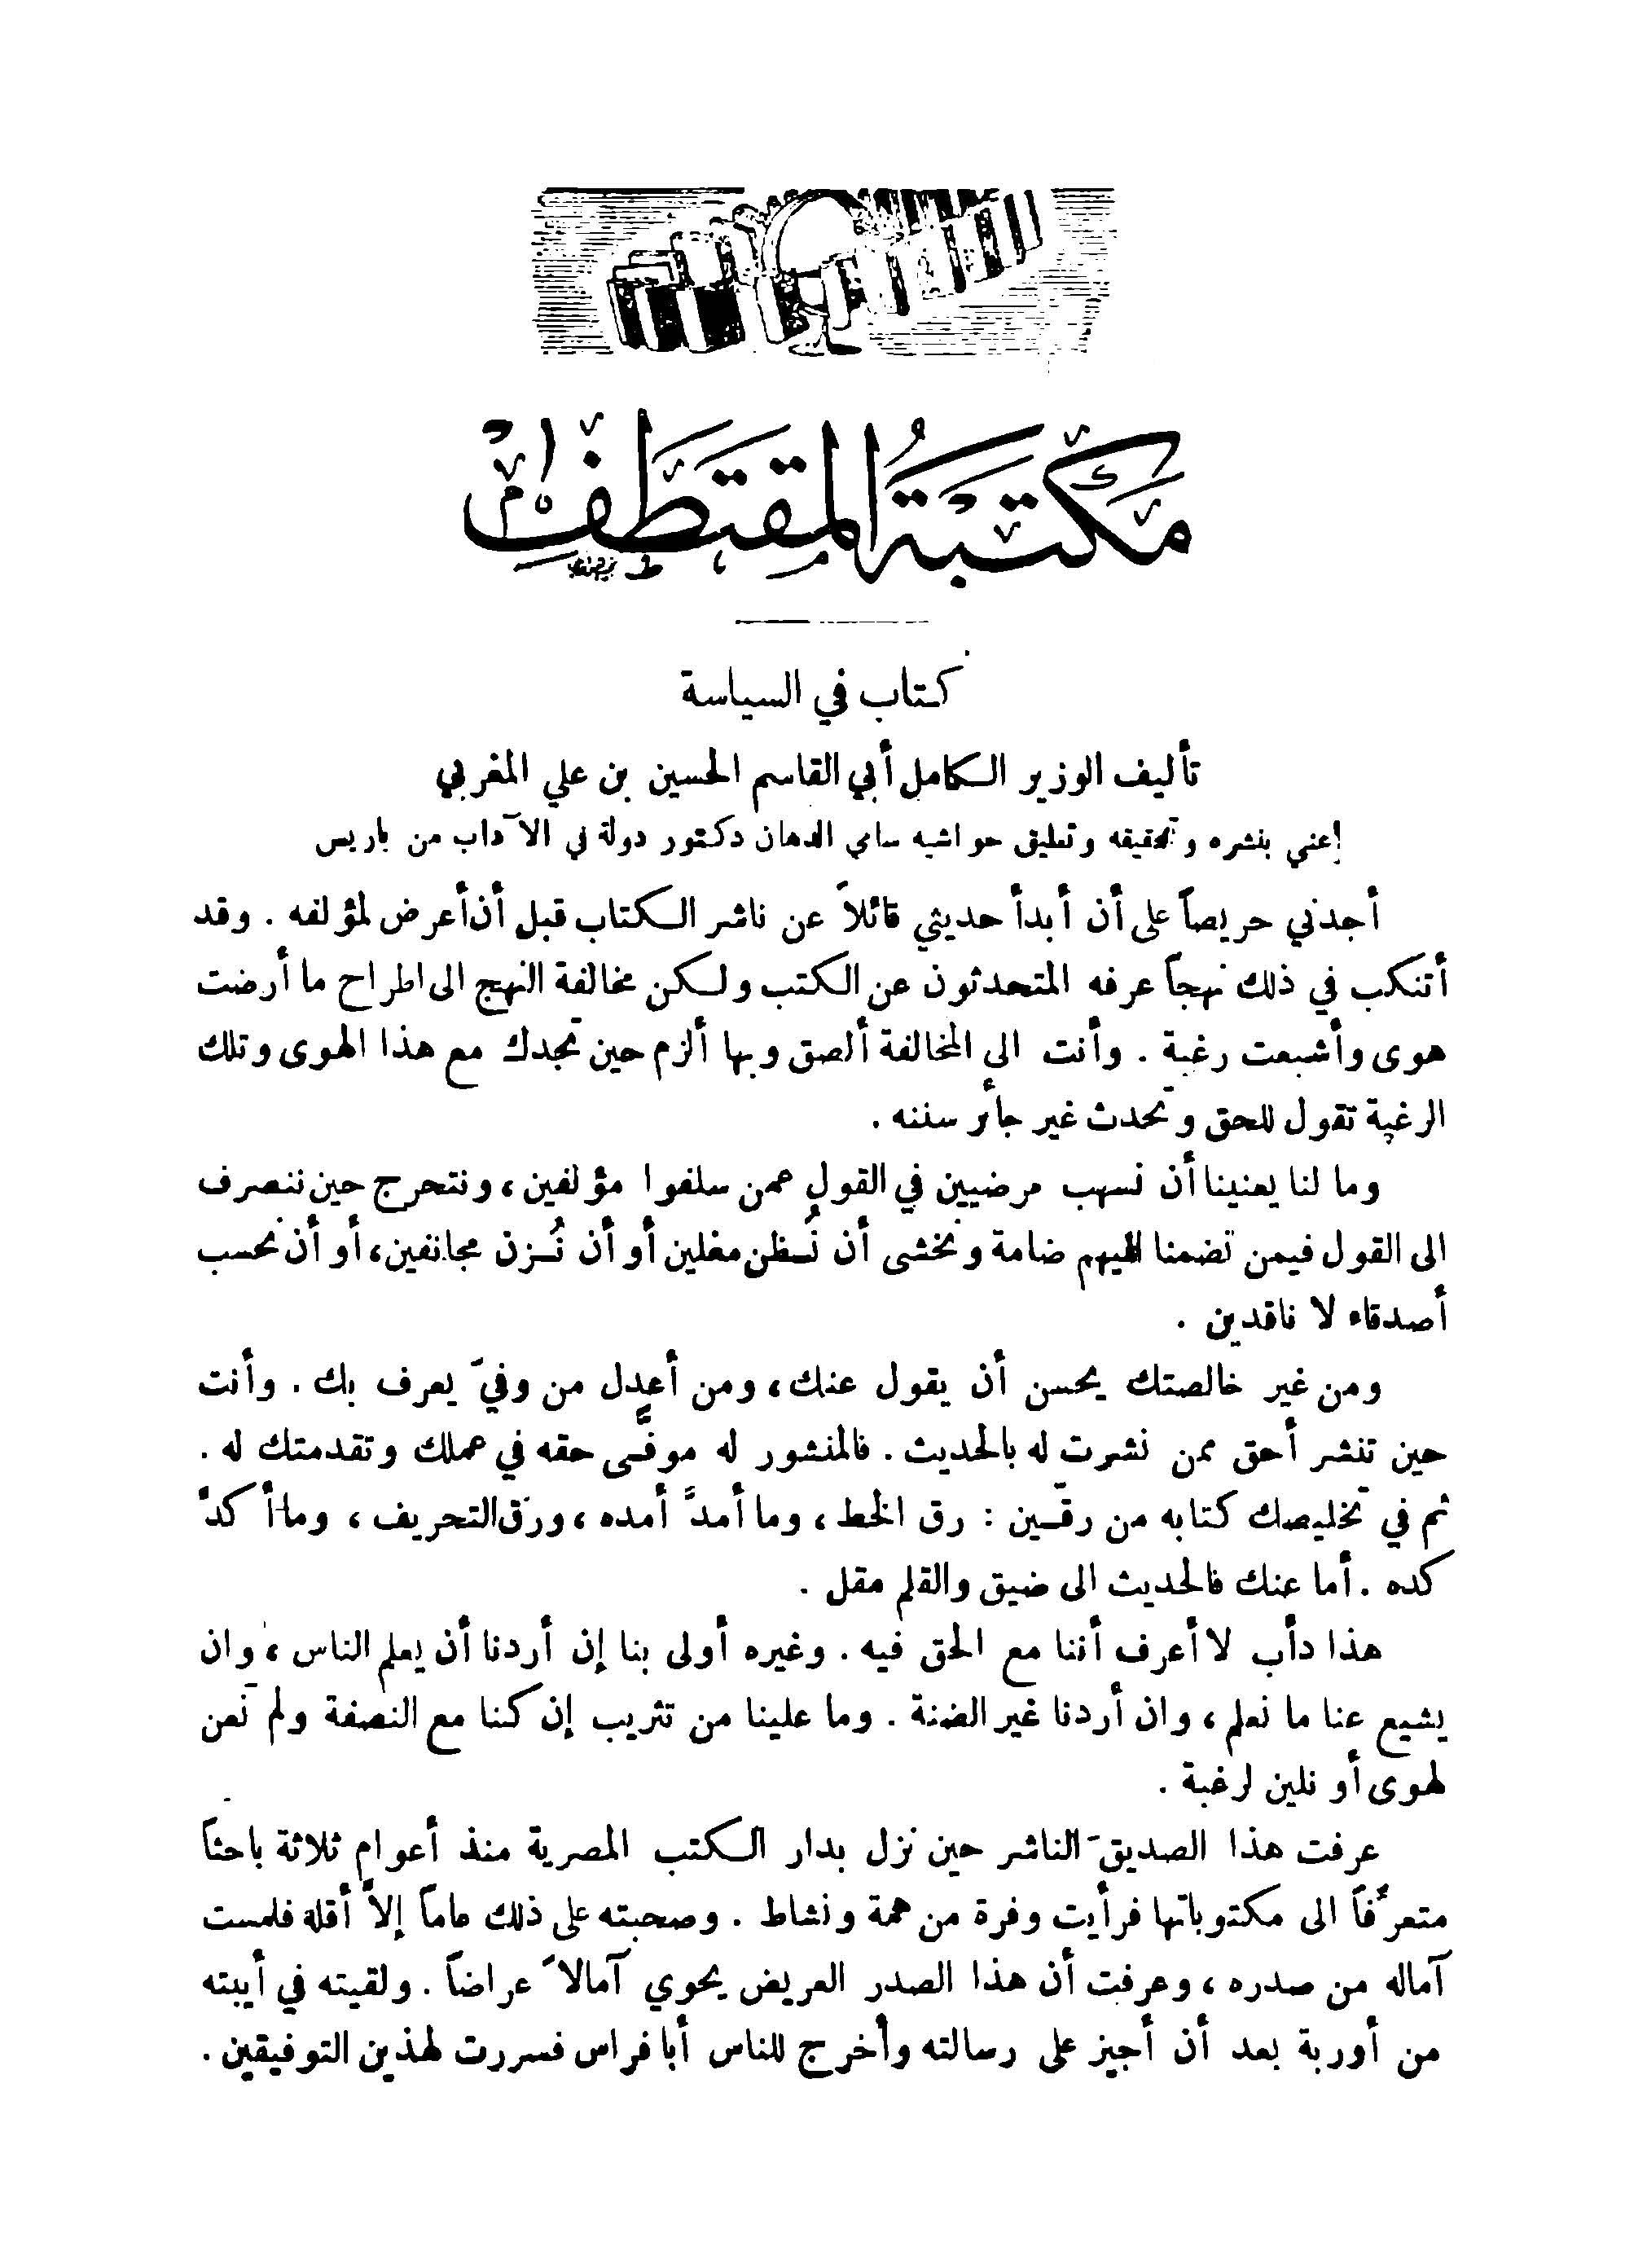 مكتبة المقتطف
كتاب في السياسة
تأليف الوزير الكامل أبي القاسم الحسين بن علي المغربي
عني بنشره وتحقيقه وتعليق حواشيه سامي الدهان دكتور دولة في الآداب من باريس
أجدني حريصاً على أن أبدأ حديثي قائلاً عن ناشر الكتاب قبل أن أعرض لمؤلفه . وقد
أتنكب في ذلك نهجاً عرفه المتحدثون عن الكتب ولكن مخالفة النهج الى اطراح ما أرضت
هوى وأشبعت رغبة . وأنت الى المخالفة ألصق وبها ألزم حين تجدك مع هذا الهوى وتلك
الرغبة تقول للحق وتحدث غير جائر سننه .
وما لنا يعنينا أن نسهب مرضيين في القول عمن سلفوا مؤلفين ، ونتحرج حين ننصرف
الى القول فيمن تضمنا اليهم ضامة ونخشى أن نُظن مغلين أو أن نُزن مجانفين، أو أن نحسب
أصدقاء لا ناقدين .
ومن غير خالصتك يحسن أن يقول عنك ، ومن أعدل من وفيّ يعرف بك . وأنت
حين تنشر أحق ممن نشرت له بالحديث . فالمنشور له موفًّى حقه في عملك وتقدمتك له .
ثم في تخليصك كتابه من رقّين : رق الخط ، وما أمدَّ أمده ، ورق التحريف ، وما أكدَّ
كده . أما عنك فالحديث الى ضيق والقلم مقل .
هذا دأب لا أعرف أننا مع الحق فيه . وغيره أولى بنا إن أردنا أن يعلم الناس ، وان
يشيع عنا ما نعلم ، وان أردنا غير الضنة . وما علينا من تثريب إن كنا مع النصفة ولم نَعن
لهوى أو نلين لرغبة .
عرفت هذا الصديق الناشر حين نزل بدار الكتب المصرية منذ أعوام ثلاثة باحثاً
متعرّفاً الى مكتوباتها فرأيت وفرة من همة ونشاط . وصحبته على ذلك عاماً إلاَّ أقله فلمست
آماله من صدره ، وعرفت أن هذا الصدر العريض يحوي آمالاً عراضاً . ولقيته في أيبته
من أوربة بعد أن أجيز على رسالته وأخرج للناس أبا فراس فسررت لهذين التوفيقين .